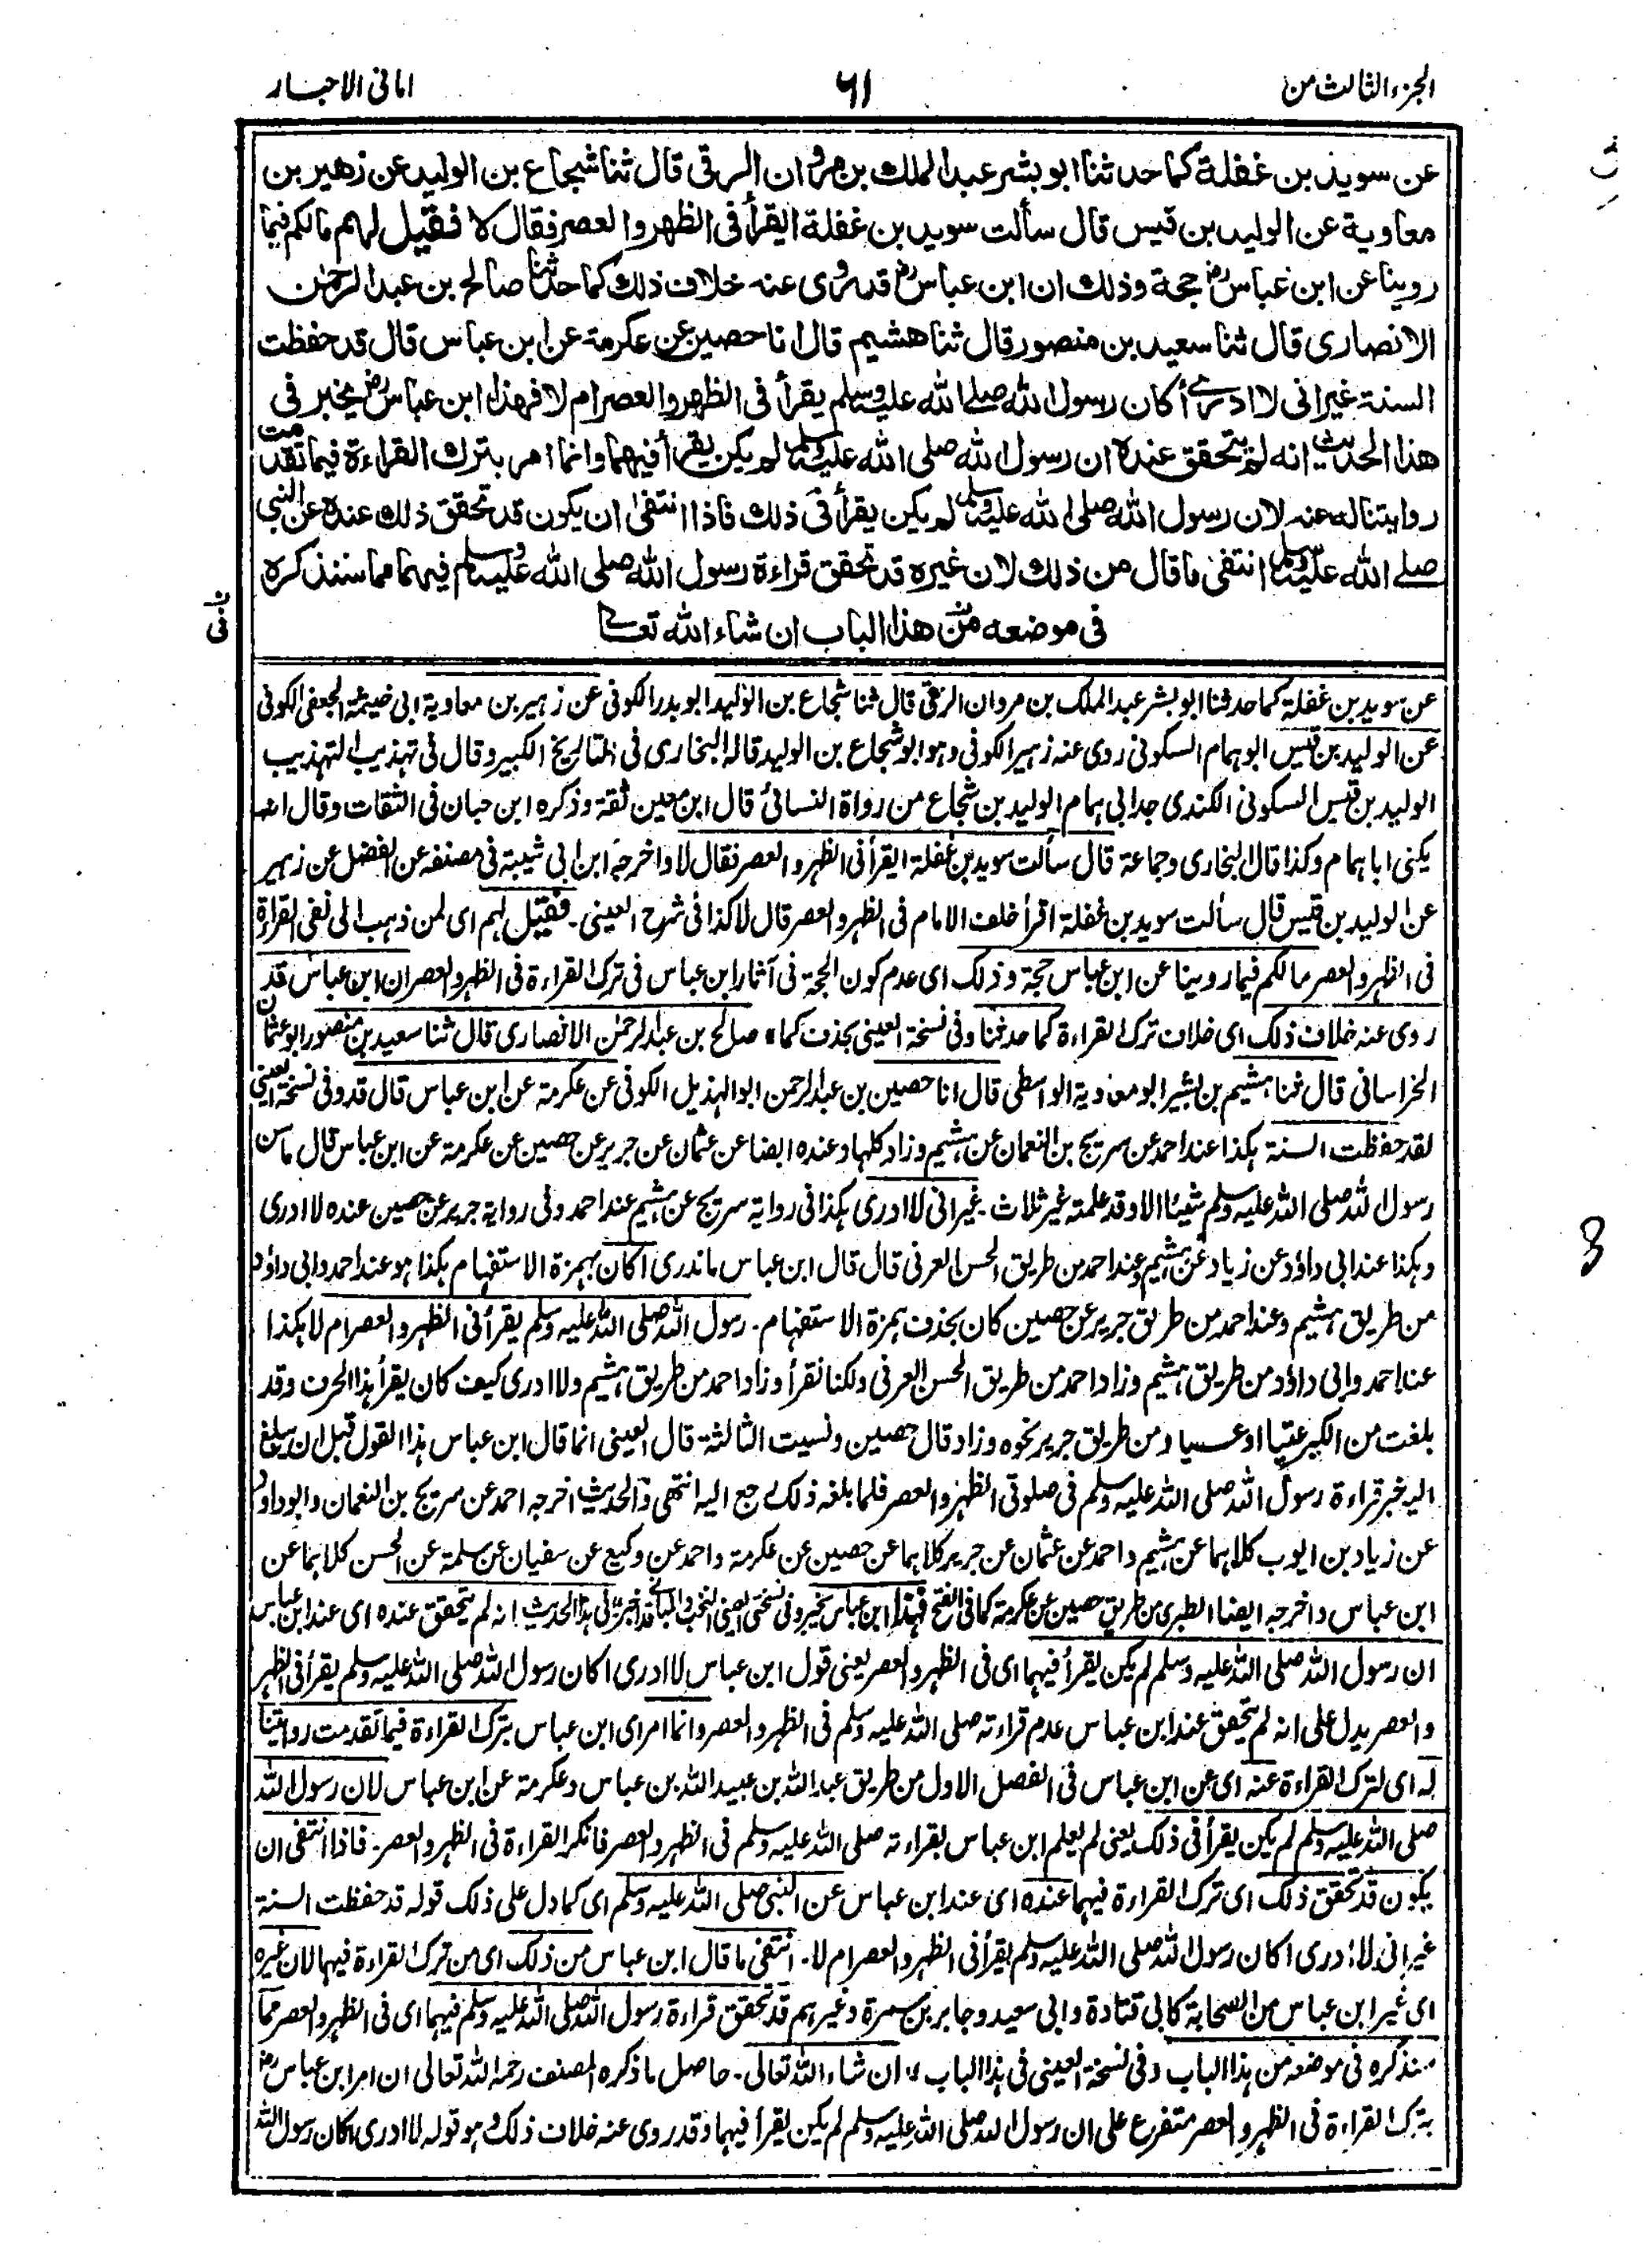 الجزء الثالث من
٦١
امانی الاحبار
عن سويد بن غفلة كما حدثنا ابو بشر عبد الملك بن مروان الرقى قال ثنا شجاع بن الوليد عن زهير بن
معاوية عن الوليد بن قيس قال سألت سويد بن غفلة ايقرأ فى الظهر والعصر فقال لا فقيل لهم مالكم فيما
روينا عن ابن عباسؓ حجة وذلك ان ابن عباسؓ قد روى عنه خلاف ذلك كما حدثنا صالح بن عبد الرحمٰن
الانصارى قال ثنا سعيد بن منصور قال ثنا هشيم قال انا حصين عن عكرمة عن ابن عباس قال قد حفظت
السنة غير انى لا ادرى أكان رسول الله صلے الله عليه وسلم يقرأ فى الظهر والعصر ام لا فهذا ابن عباسؓ يخبر فى
هذا الحديث انه لم يتحقق عنده ان رسول الله صلى الله عليه وسلم لم يكن يقرأ فيهما وانما امر بترك القراءة فيما تقدمت
روايتنا له عنه لان رسول الله صلى الله عليه وسلم لم يكن يقرأ فى ذلك فاذا انتفىٰ ان يكون قد تحقق ذلك عنده عن النبى
صلے الله عليه وسلم انتفىٰ ما قال من ذلك لان غيره قد تحقق قراءة رسول الله صلى الله عليه وسلم فيهما مما سنذكره
فى موضعه من هذا الباب ان شاء الله تعالےٰ
فى
عن سويد بن غفلة كما حدثنا ابو بشر عبد الملک بن مروان الرقی قال ثنا شجاع بن الولید ابو بدر الکوفی عن زہیر بن معاویة ابی خیثمة الجعفی الکوفی
عن الولید بن قیس ابو ہمام السکونی روی عنہ زہیر الکوفی وہو ابو شجاع بن الولید قالہ البخاری فی التاریخ الکبیر وقال فی تہذیب التہذیب
الولید بن قیس السکونی الکندی جد ابی ہمام الولید بن شجاع من رواة النسائی قال ابن معین ثقة وذکرہ ابن حبان فی الثقات وقال انہ
یکنی ابا ہمام وکذا قال البخاری وجماعة قال سألت سوید بن غفلة ایقرأ فی الظہر والعصر فقال لا واخرجہ ابن ابی شیبة فی مصنفہ عن الفضل عن زہیر
عن الولید بن قیس قال سألت سوید بن غفلة اقرأ خلف الامام فی الظہر والعصر قال لا کذا فی شرح العینی۔ فقیل لہم ای لمن ذہب الی نفی القراءة
فی الظہر والعصر مالکم فیما روینا عن ابن عباس حجة وذلک ای عدم کون الحجة فی آثار ابن عباس فی ترک القراءة فی الظہر والعصر ان ابن عباس قد
روی عنہ خلاف ذلک ای خلاف ترک القراءة کما حدثنا وفی نسخة العینی بحذف کما، صالح بن عبد الرحمٰن الانصاری قال ثنا سعید بن منصور ابو عثمان
الخراسانی قال ثنا ہشیم بن بشیر ابو معاویة الواسطی قال انا حصین بن عبد الرحمن ابو الہذیل الکوفی عن عکرمة عن ابن عباس قال قد وفی نسخة العینی
لقد حفظت السنة ہکذا عند احمد عن سریج بن النعمان عن ہشیم وزاد کلہا وعندہ ایضا عن عثمان عن جریر عن حصین عن عکرمة عن ابن عباس قال ما سن
رسول اللہ صلی اللہ علیہ وسلم شیئا الا وقد علمتہ غیر ثلاث۔ غیر انی لا ادری ہکذا فی روایة سریج عن ہشیم عند احمد وفی روایة جریر عن حصین عندہ لا ادری
وہکذا عند ابی داؤد عن زیاد عن ہشیم وعند احمد من طریق الحسن العرنی قال قال ابن عباس ما ندری اکان بہمزة الاستفہام ہکذا ہو عند احمد وابی داؤد
من طریق ہشیم وعند احمد من طریق جریر عن حصین کان بحذف ہمزة الاستفہام۔ رسول اللہ صلی اللہ علیہ وسلم یقرأ فی الظہر والعصر ام لا ہکذا
عند احمد وابی داؤد من طریق ہشیم وزاد احمد من طریق الحسن العرنی ولکنا نقرأ وزاد احمد من طریق ہشیم ولا ادری کیف کان یقرأ ہذا الحرف وقد
بلغت من الکبر عتیا او عسیا ومن طریق جریر نحوہ وزاد قال حصین ونسیت الثالثة قال العینی انما قال ابن عباس ہذا القول قبل ان یبلغ
الیہ خبر قراءة رسول اللہ صلی اللہ علیہ وسلم فی صلوتی الظہر والعصر فلما بلغہ ذلک رجع الیہ انتہی والحدیث اخرجہ احمد عن سریج بن النعمان وابو داؤد
عن زیاد بن ایوب کلاہما عن ہشیم واحمد عن عثمان عن جریر کلاہما عن حصین عن عکرمة واحمد عن وکیع عن سفیان عن سلمة عن الحسن کلاہما عن
ابن عباس واخرجہ ایضا الطبری من طریق حصین عن عکرمة کما فی الفتح فہذا ابن عباس یخبر وفی نسختی العینی النخب والمبانی قد اخبر فی ہذا الحدیث انہ لم یتحقق عندہ ای عند ابن عباس
ان رسول اللہ صلی اللہ علیہ وسلم لم یکن یقرأ فیہما ای فی الظہر والعصر یعنی قول ابن عباس لا ادری اکان رسول اللہ صلی اللہ علیہ وسلم یقرأ فی الظہر
والعصر یدل علی انہ لم یتحقق عند ابن عباس عدم قراءتہ صلی اللہ علیہ وسلم فی الظہر والعصر وانما امر ای ابن عباس بترک القراءة فیما تقدمت روایتنا
لہ ای لترک القراءة عنہ ای عن ابن عباس فی الفصل الاول من طریق عبد اللہ بن عبید اللہ بن عباس وعکرمة عن ابن عباس لان رسول اللہ
صلی اللہ علیہ وسلم لم یکن یقرأ فی ذلک یعنی لم یعلم ابن عباس بقراءتہ صلی اللہ علیہ وسلم فی الظہر والعصر فانکر القراءة فی الظہر والعصر۔ فاذا انتفی ان
یکون قد تحقق ذلک ای ترک القراءة فیہما عندہ ای عند ابن عباس عن النبی صلی اللہ علیہ وسلم ای کما دل علی ذلک قولہ قد حفظت السنة
غیر انی لا ادری اکان رسول اللہ صلی اللہ علیہ وسلم یقرأ فی الظہر والعصر ام لا۔ انتفی ما قال ابن عباس من ذلک ای من ترک القراءة فیہما لان غیرہ
ای غیر ابن عباس من الصحابة کابی قتادة وابی سعید وجابر بن سمرة وغیرہم قد تحقق قراءة رسول اللہ صلی اللہ علیہ وسلم فیہما ای فی الظہر والعصر مما
سنذکرہ فی موضعہ من ہذا الباب وفی نسخة العینی فی ہذا الباب، ان شاء اللہ تعالی۔ حاصل ما ذکرہ المصنف رحمہ اللہ تعالی ان امر ابن عباسؓ
بترک القراءة فی الظہر والعصر متفرع علی ان رسول اللہ صلی اللہ علیہ وسلم لم یکن یقرأ فیہما وقد روی عنہ خلاف ذلک وہو قولہ لا ادری اکان رسول اللہ